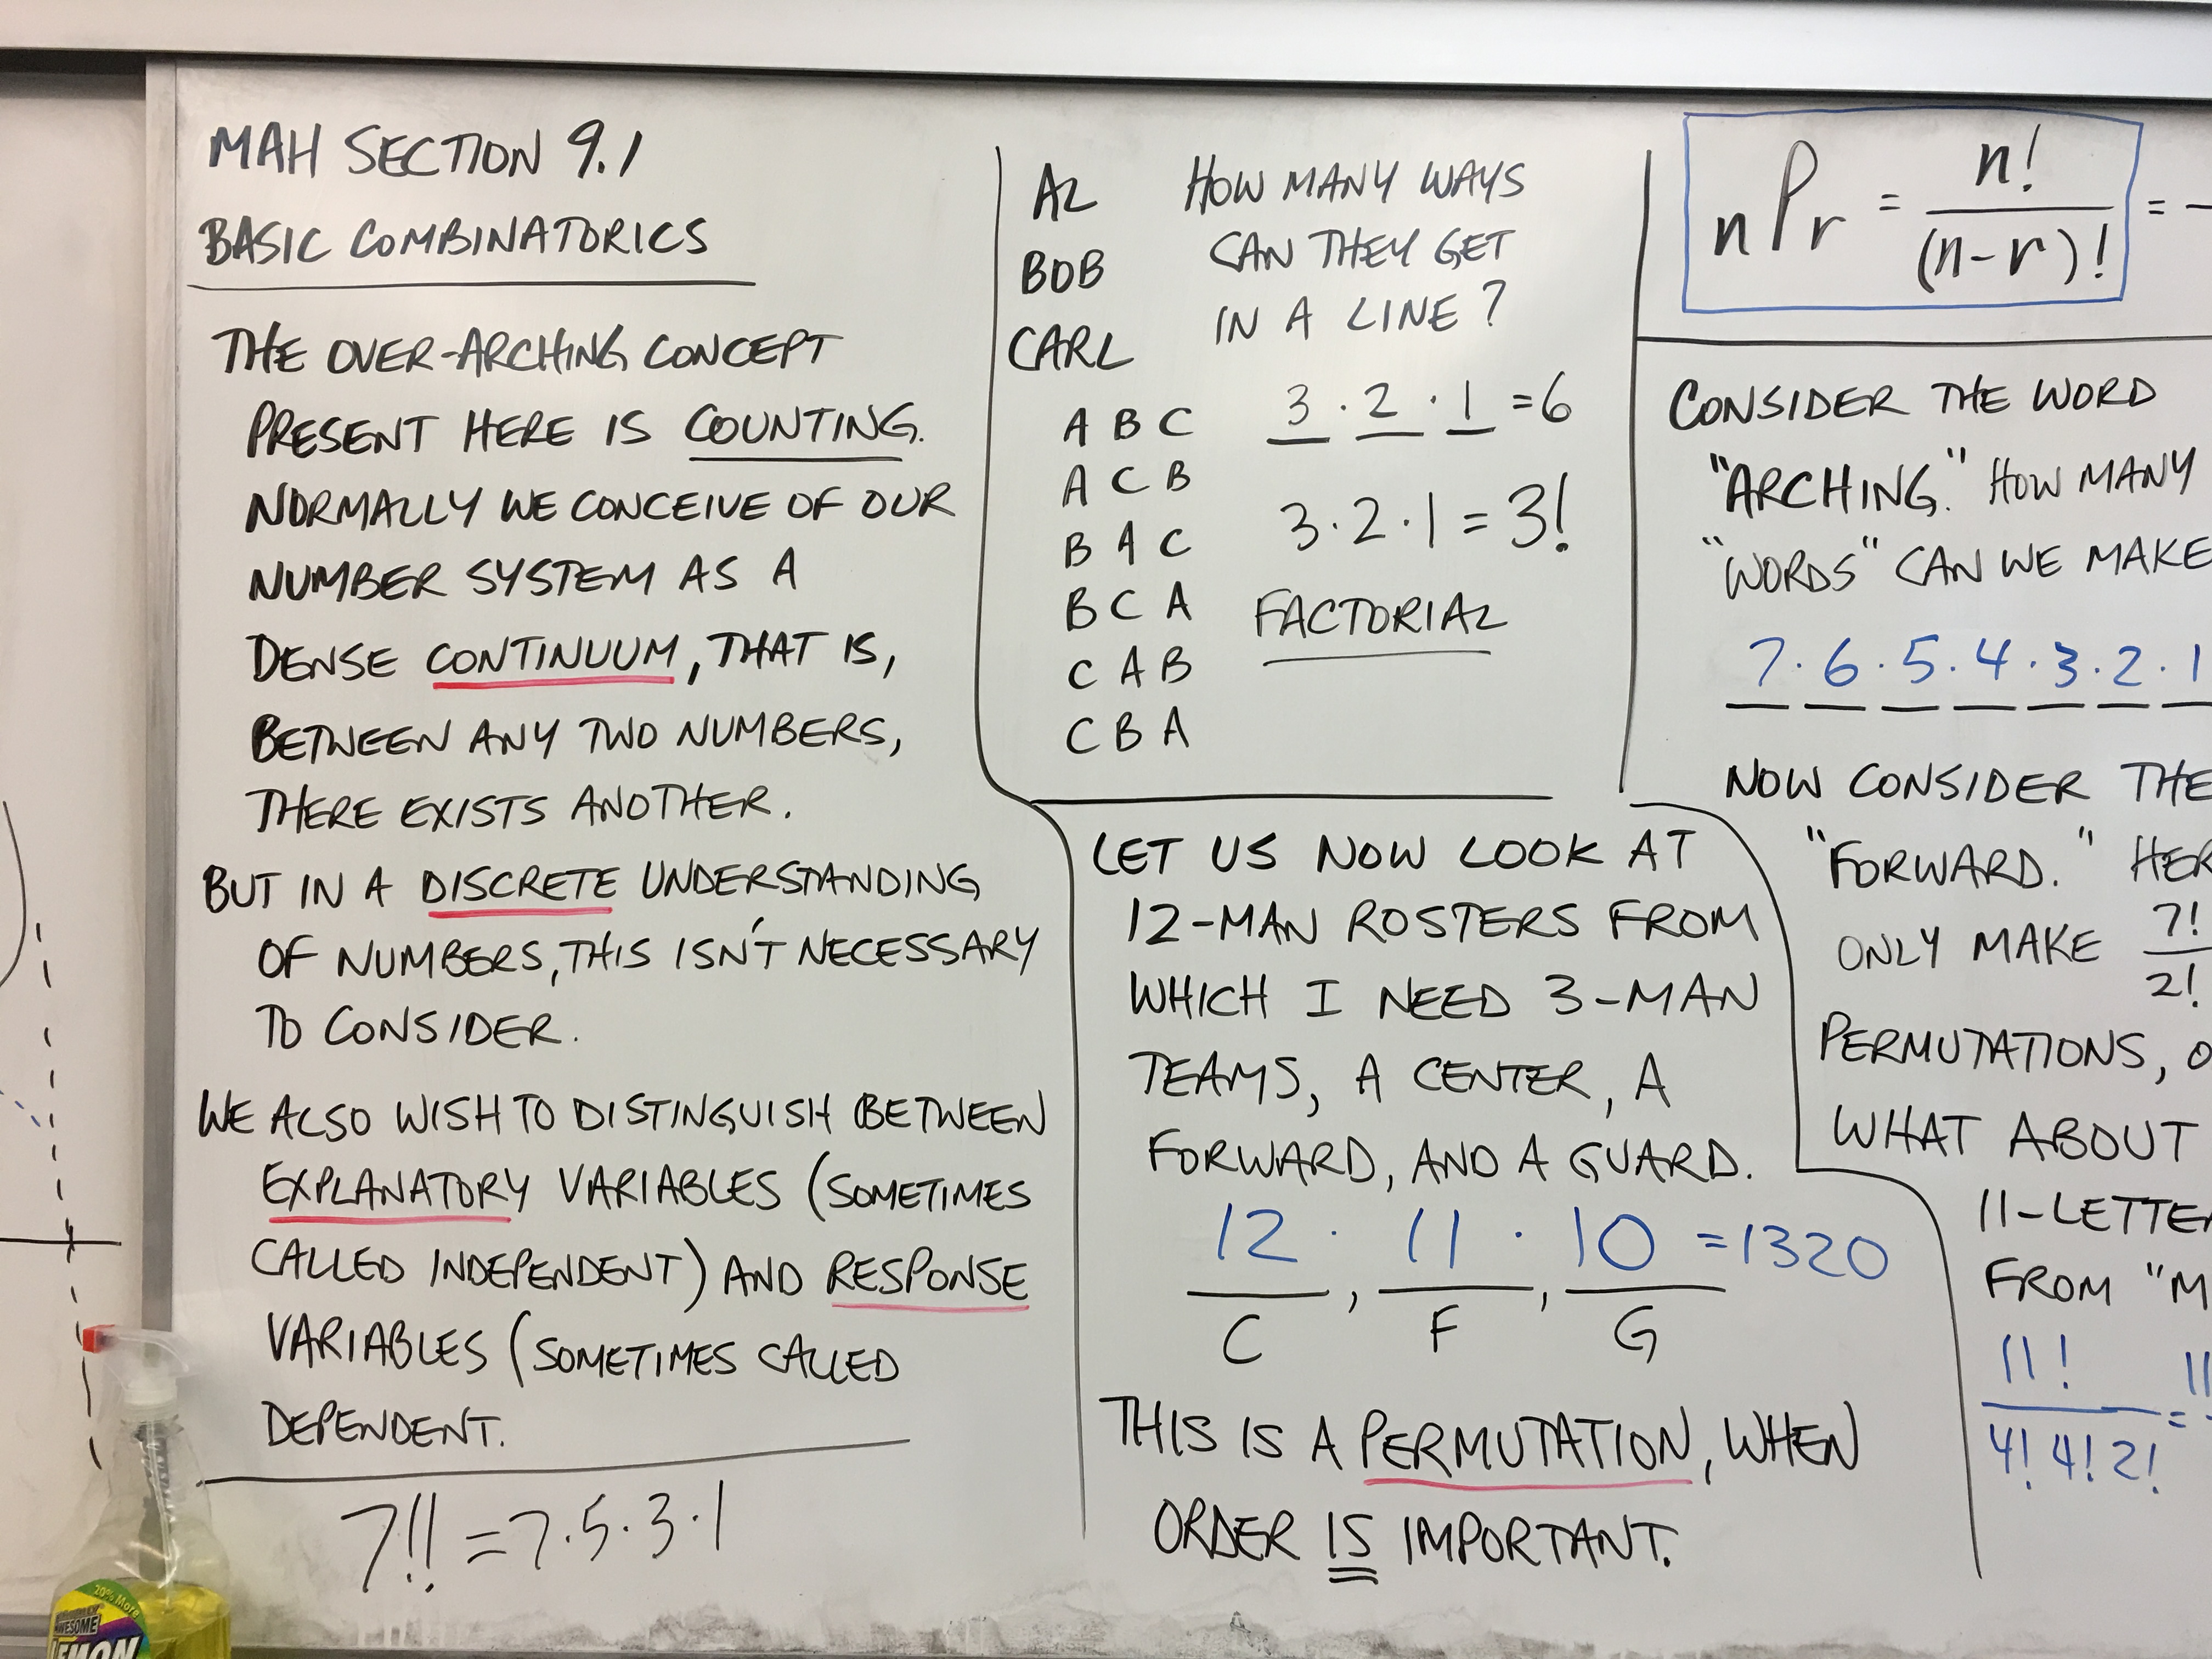 MAH SECTION 9.1
BASIC COMBINATORICS
THE OVER-ARCHING CONCEPT
PRESENT HERE IS COUNTING.
NORMALLY WE CONCEIVE OF OUR
NUMBER SYSTEM AS A
DENSE CONTINUUM, THAT IS,
BETWEEN ANY TWO NUMBERS,
THERE EXISTS ANOTHER.
BUT IN A DISCRETE UNDERSTANDING
OF NUMBERS, THIS ISN'T NECESSARY
TO CONSIDER.
WE ALSO WISH TO DISTINGUISH BETWEEN
EXPLANATORY VARIABLES (SOMETIMES
CALLED INDEPENDENT) AND RESPONSE
VARIABLES (SOMETIMES CALLED
DEPENDENT.
7!! = 7·5·3·1
AL
BOB
CARL
HOW MANY WAYS
CAN THEY GET
IN A LINE?
A B C
A C B
B A C
B C A
C A B
C B A
3 · 2 · 1 = 6
3·2·1 = 3!
FACTORIAL
LET US NOW LOOK AT
12-MAN ROSTERS FROM
WHICH I NEED 3-MAN
TEAMS, A CENTER, A
FORWARD, AND A GUARD.
12 · 11 · 10 = 1320
C , F , G
THIS IS A PERMUTATION, WHEN
ORDER IS IMPORTANT.
nPr = n! / (n-r)! =
CONSIDER THE WORD
"ARCHING." HOW MANY
"WORDS" CAN WE MAKE
7·6·5·4·3·2·1
NOW CONSIDER THE
"FORWARD." HER
ONLY MAKE 7!/2!
PERMUTATIONS, O
WHAT ABOUT
11-LETTE
FROM "M
11! / 4! 4! 2! = 11
20% More
AWESOME
LEMON